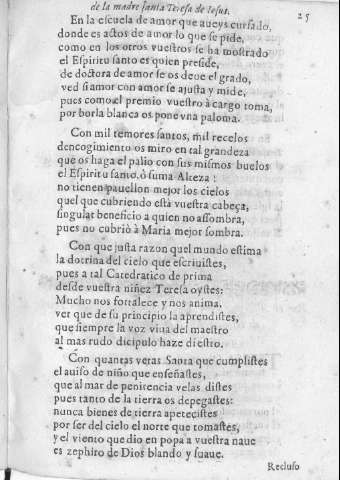 de la madre santa Teresa de Iesus.
25
En la escuela de amor que aueys cursado,
donde es actos de amor lo que se pide,
como en los otros vuestros se ha mostrado
el Espiritu santo es quien preside,
de doctora de amor se os deue el grado,
ved si amor con amor se ajusta y mide,
pues como el premio vuestro à cargo toma,
por borla blanca os pone vna paloma.
Con mil temores santos, mil recelos
dencogimiento os miro en tal grandeza
que os haga el palio con sus mismos buelos
el Espiritu santo, ò suma Alteza:
no tienen pauellon mejor los cielos
quel que cubriendo està vuestra cabeça,
singular beneficio a quien no assombra,
pues no cubriò à Maria mejor sombra.
Con que justa razon quel mundo estima
la dotrina del cielo que escriuistes,
pues a tal Catedratico de prima
desde vuestra niñez Teresa oystes:
Mucho nos fortalece y nos anima,
ver que de su principio la aprendistes,
que siempre la voz viua del maestro
al mas rudo dicipulo haze diestro.
Con quantas veras Santa que cumplistes
el auiso de niño que enseñastes,
que al mar de penitencia velas distes
pues tanto de la tierra os depegastes:
nunca bienes de tierra apetecistes
por ser del cielo el norte que tomastes,
y el viento que dio en popa a vuestra naue
es zephiro de Dios blando y suaue.
Recluso